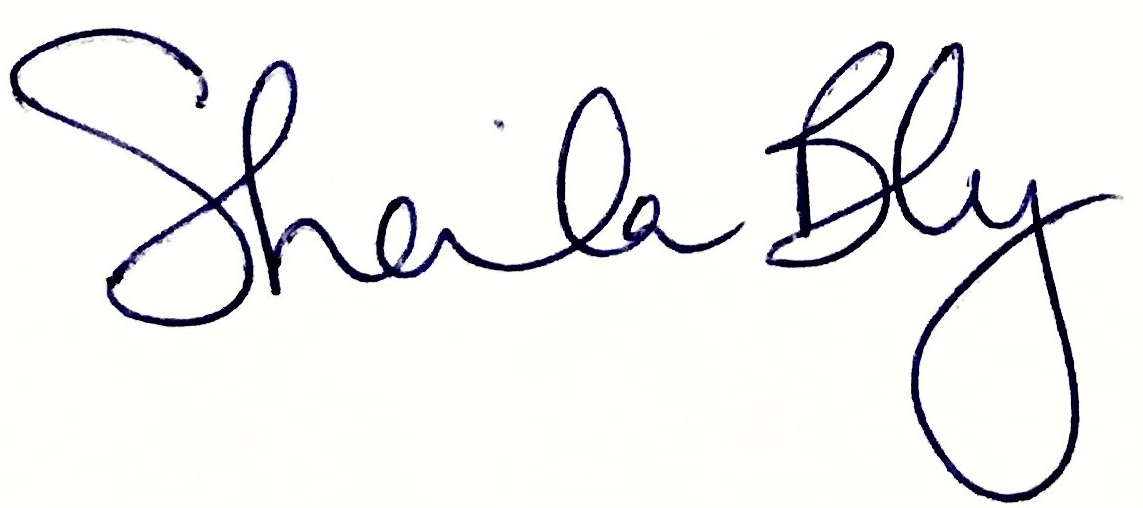 Sheila Bly